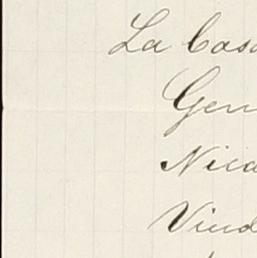 La Casa
Gen
Nica
Viud